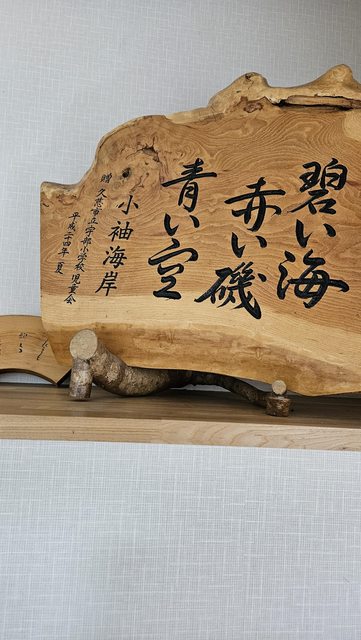 碧い海
赤い磯
青い空
小袖海岸
贈 久慈市立宇部小学校 児童会
平成二十四年 夏